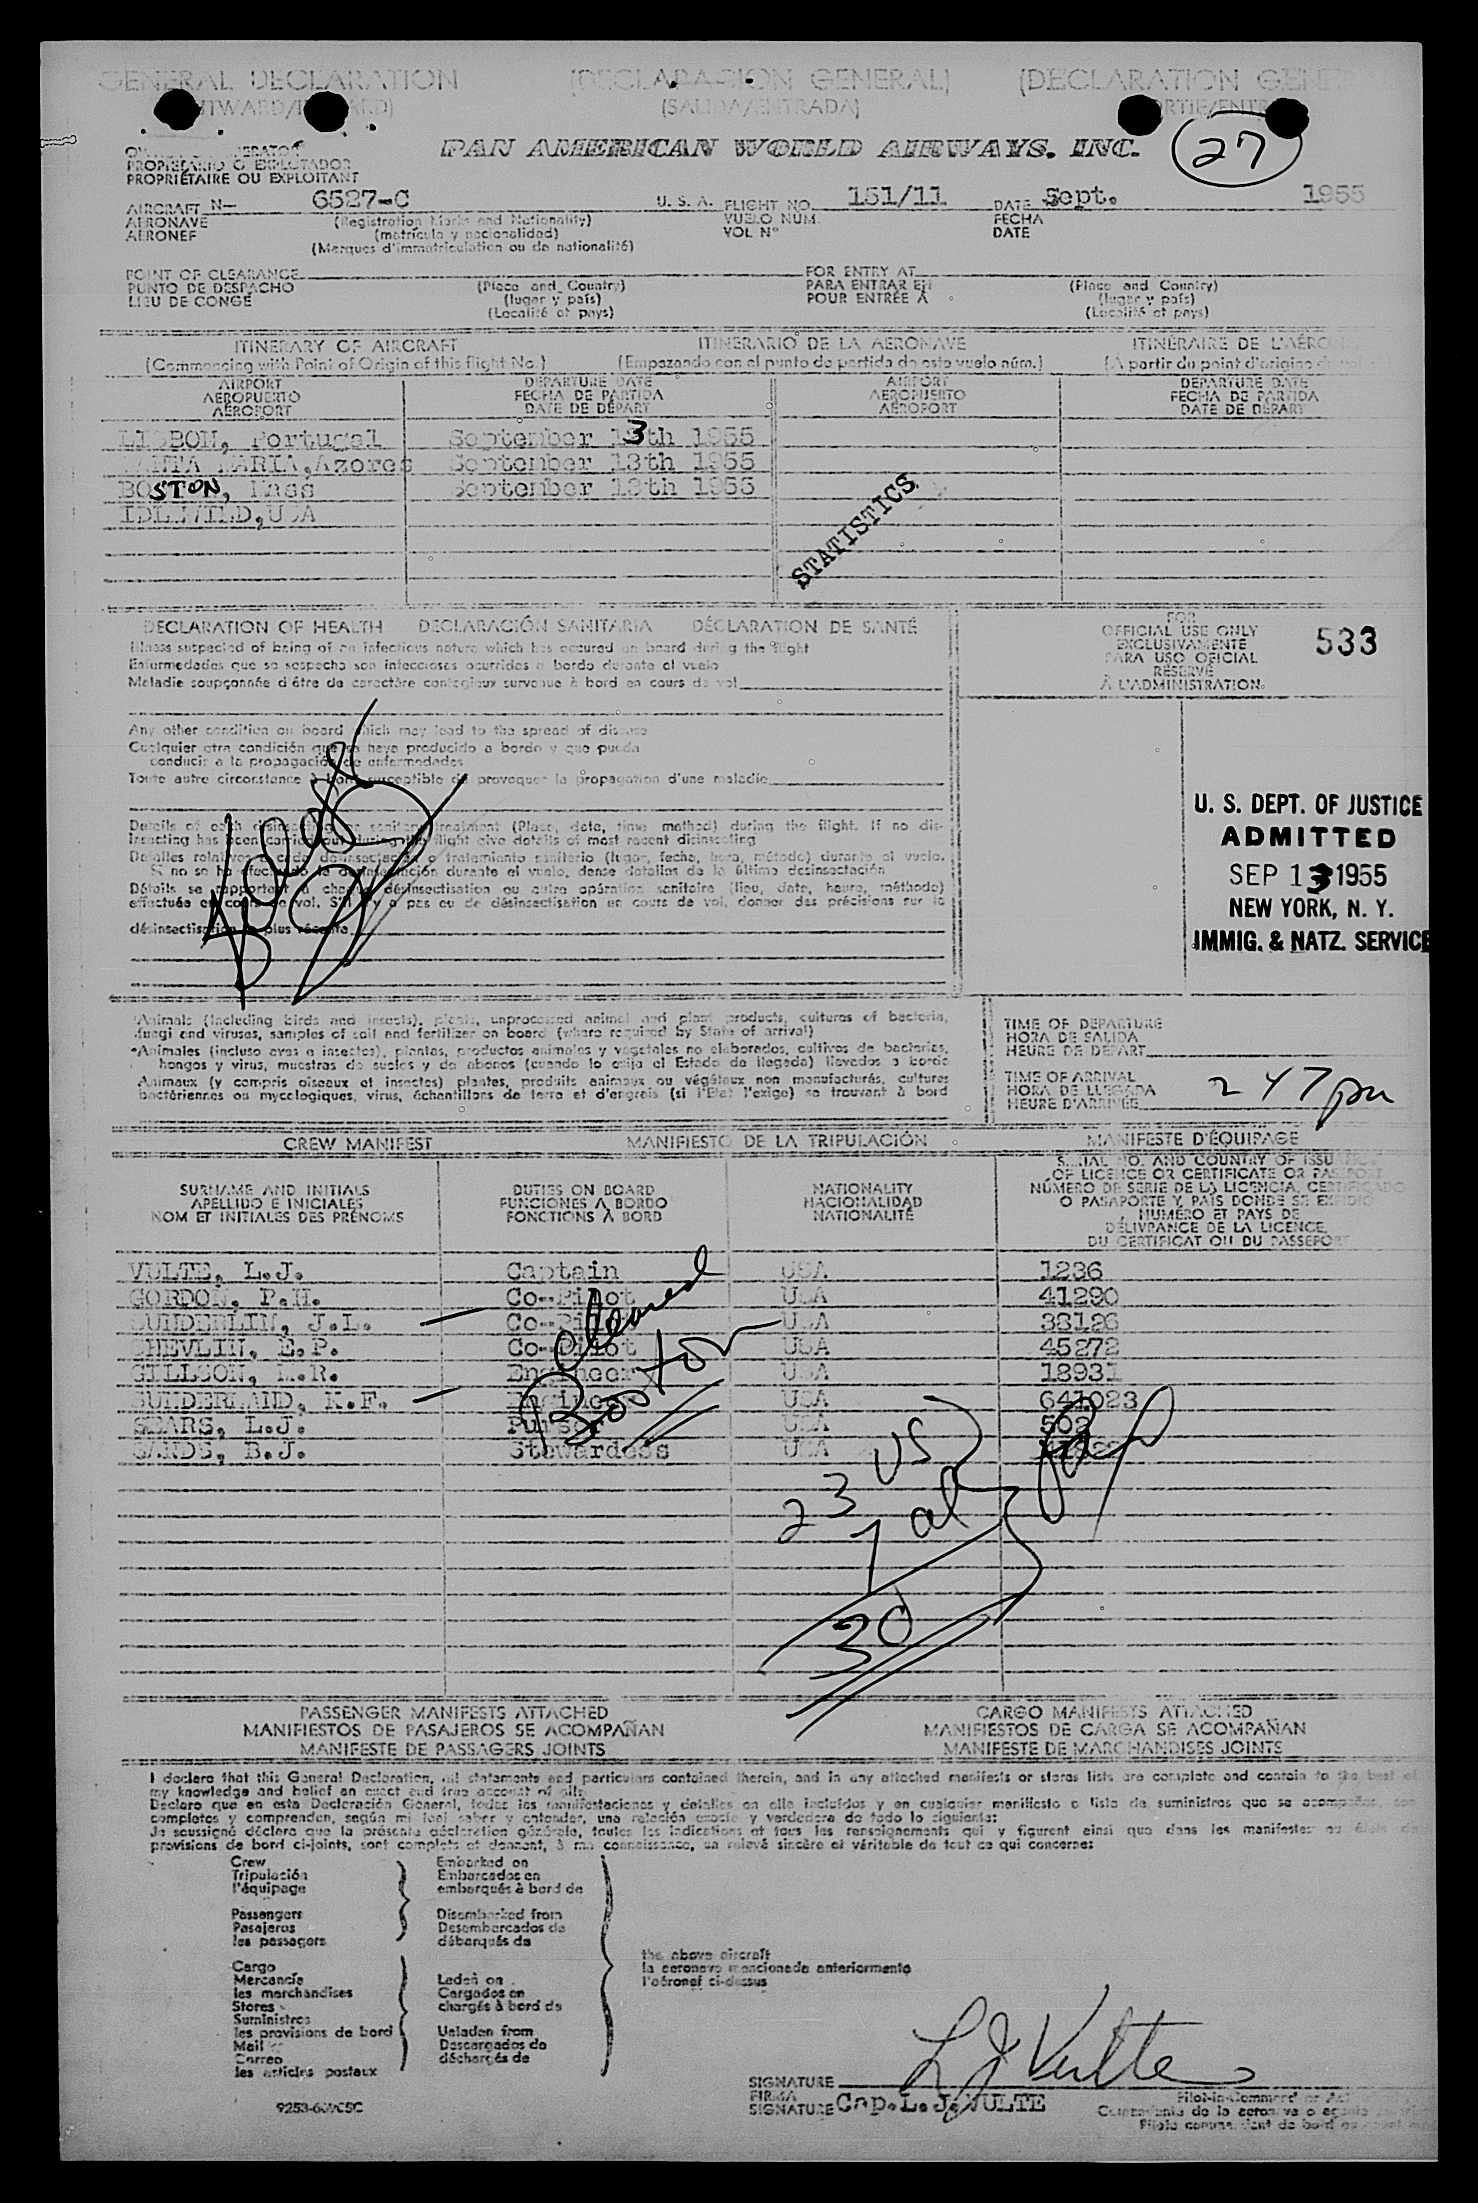 GENERAL DECLARATION (DECLARACION GENERAL) (DECLARATION
(SALIDA/ENTRADA)
PROPIETARIO O EXPLOTADOR
PROPRIÉTAIRE OU EXPLOITANT
PAN AMERICAN WORLD AIRWAYS, INC.
27
AIRCRAFT N— 6527-C U. S. A. FLIGHT NO. 151/11 DATE Sept. 1955
AERONAVE (Registration Marks and Nationality) VUELO NÚM. FECHA
AÉRONEF (matrícula y nacionalidad) VOL N° DATE
(Marques d'immatriculation ou de nationalité)
POINT OF CLEARANCE FOR ENTRY AT
PUNTO DE DESPACHO (Place and Country) PARA ENTRAR EN (Place and Country)
LIEU DE CONGÉ (lugar y país) POUR ENTRÉE À (lugar y país)
(Localité et pays) (Localité et pays)
ITINERARY OF AIRCRAFT ITINERARIO DE LA AERONAVE ITINÉRAIRE DE
(Commencing with Point of Origin of this flight No.) (Empezando con el punto de partida de este vuelo núm.) (A partir du point d'origine
AIRPORT DEPARTURE DATE AIRPORT DEPARTURE DATE
AEROPUERTO FECHA DE PARTIDA AEROPUERTO FECHA DE PARTIDA
AÉROPORT DATE DE DÉPART AÉROPORT DATE DE DÉPART
LISBON, Portugal September 13th 1955
SANTA MARIA, Azores September 13th 1955
BOSTON, Mass September 13th 1955
IDLEWILD, USA
STATISTICS
DECLARATION OF HEALTH DECLARACIÓN SANITARIA DÉCLARATION DE SANTÉ
Illness suspected of being of an infectious nature which has occured on board during the flight
Enfermedades que se sospecha son infecciosas ocurridas a bordo durante el vuelo
Maladie soupçonnée d'être de caractère contagieux survenue à bord en cours de vol
FOR
OFFICIAL USE ONLY
EXCLUSIVAMENTE
PARA USO OFICIAL
RÉSERVÉ
À L'ADMINISTRATION.
533
Any other condition on board which may lead to the spread of disease
Cualquier otra condición que se haya producido a bordo y que pueda
conducir a la propagación de enfermedades
Toute autre circonstance à bord susceptible de provoquer la propagation d'une maladie
Details of each disinsecting or sanitary treatment (Place, date, time method) during the flight. If no dis-
insecting has been carried out during the flight give details of most recent disinsecting
Detalles relativos a cada desinsectación o tratamiento sanitario (lugar, fecha, hora, método) durante el vuelo.
Si no se ha efectuado la desinsectación durante el vuelo, dense detalles de la última desinsectación
Détails se rapportant à chaque désinsectisation ou autre opération sanitaire (lieu, date, heure, méthode)
effectuée en cours de vol. S'il n'y a pas eu de désinsectisation en cours de vol, donner des précisions sur la
désinsectisation la plus récente
U. S. DEPT. OF JUSTICE
ADMITTED
SEP 13 1955
NEW YORK, N. Y.
IMMIG. & NATZ. SERVICE
Animals (including birds and insects), plants, unprocessed animal and plant products, cultures of bacteria,
fungi and viruses, samples of soil and fertilizer on board (where required by State of arrival)
Animales (incluso aves e insectos), plantas, productos animales y vegetales no elaborados, cultivos de bacterias,
hongos y virus, muestras de suelos y de abonos (cuando lo exija el Estado de llegada) llevados a bordo
Animaux (y compris oiseaux et insectes) plantes, produits animaux ou végétaux non manufacturés, cultures
bactériennes ou mycologiques, virus, échantillons de terre et d'engrais (si l'État l'exige) se trouvant à bord
TIME OF DEPARTURE
HORA DE SALIDA
HEURE DE DÉPART
TIME OF ARRIVAL
HORA DE LLEGADA 2 47 pm
HEURE D'ARRIVÉE
CREW MANIFEST MANIFIESTO DE LA TRIPULACIÓN MANIFESTE D'ÉQUIPAGE
SURNAME AND INITIALS DUTIES ON BOARD NATIONALITY
APELLIDO E INICIALES FUNCIONES A BORDO NACIONALIDAD
NOM ET INITIALES DES PRÉNOMS FONCTIONS À BORD NATIONALITÉ
SERIAL NO. AND COUNTRY OF ISSUE
OF LICENCE OR CERTIFICATE OR PASSPORT
NÚMERO DE SERIE DE LA LICENCIA, CERTIFICADO
O PASAPORTE Y PAÍS DONDE SE EXPIDIÓ
NUMÉRO ET PAYS DE
DÉLIVRANCE DE LA LICENCE,
DU CERTIFICAT OU DU PASSEPORT
VULTE, L.J. Captain USA 1236
GORDON, P.H. Co-Pilot USA 41290
J.L. Co-Pilot USA 38126
SHEVLIN, E.P. Co-Pilot USA 45272
GILLSON, R. Engineer USA 18931
SUNDERLAND, K.F. Engineer USA 641023
SEARS, L.J. Purser USA 502
SANDS, B.J. Stewardess USA
Cleared
Boston
23 US
7 al
30
PASSENGER MANIFESTS ATTACHED CARGO MANIFESTS ATTACHED
MANIFIESTOS DE PASAJEROS SE ACOMPAÑAN MANIFIESTOS DE CARGA SE ACOMPAÑAN
MANIFESTE DE PASSAGERS JOINTS MANIFESTE DE MARCHANDISES JOINTS
I declare that this General Declaration, all statements and particulars contained therein, and in any attached manifests or stores lists are complete and contain to the best of
my knowledge and belief an exact and true account of all:
Declaro que en esta Declaración General, todas las manifestaciones y detalles en ella incluídos y en cualquier manifiesto o lista de suministros que se acompañan, son
completos y comprenden, según mi leal saber y entender, una relación exacta y verdadera de todo lo siguiente:
Je soussigné déclare que la présente déclaration générale, toutes les indications et tous les renseignements qui y figurent ainsi que dans les manifestes ou états de
provisions de bord ci-joints, sont complets et donnent, à ma connaissance, un relevé sincère et véritable de tout ce qui concerne:
Crew Embarked on
Tripulación Embarcados en
l'équipage embarqués à bord de
Passengers Disembarked from
Pasajeros Desembarcados de
les passagers débarqués de
the above aircraft
la aeronave mencionada anteriormente
l'aéronef ci-dessus
Cargo
Mercancía Laden on
les marchandises Cargados en
Stores chargés à bord de
Suministros
les provisions de bord Unladen from
Mail Descargados de
Correo déchargés de
les articles postaux
L J Vulte
SIGNATURE
FIRMA
SIGNATURE Cap. L. J. VULTE
Pilot-in-Command or